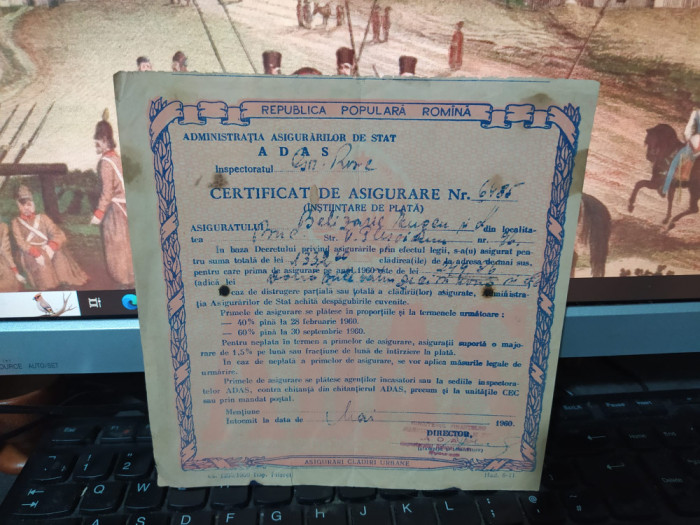 REPUBLICA POPULARĂ ROMÎNĂ
ADMINISTRAȚIA ASIGURĂRILOR DE STAT
ADAS
Inspectoratul
CERTIFICAT DE ASIGURARE Nr. 6485
(ÎNȘTIINȚARE DE PLATĂ)
ASIGURATULUI Belizarie Eugen din localita-
tea Str. nr.
In baza Decretului privind asigurările prin efectul legii, s-a(u) asigurat pentru
suma totală de lei clădirea(ile) de la adresa de mai sus,
pentru care prima de asigurare pe anul 1960 este de lei
(adică lei
In caz de distrugere parțială sau totală a clădirii(lor) asigurate, Administra-
ția Asigurărilor de Stat achită despăgubirile cuvenite.
Primele de asigurare se plătesc în proporțiile și la termenele următoare :
— 40% pînă la 28 februarie 1960.
— 60% pînă la 30 septembrie 1960.
Pentru neplata în termen a primelor de asigurare, asigurații suportă o majo-
rare de 1,5% pe lună sau fracțiune de lună de întîrziere la plată.
In caz de neplată a primelor de asigurare, se vor aplica măsurile legale de
urmărire.
Primele de asigurare se plătesc agenților încasatori sau la sediile inspectora-
telor ADAS, contra chitanță din chitanțierul ADAS, precum și la unitățile CEC
sau prin mandat poștal.
Mențiune
Intocmit la data de Mai 1960.
DIRECTOR,
ASIGURĂRI CLĂDIRI URBANE